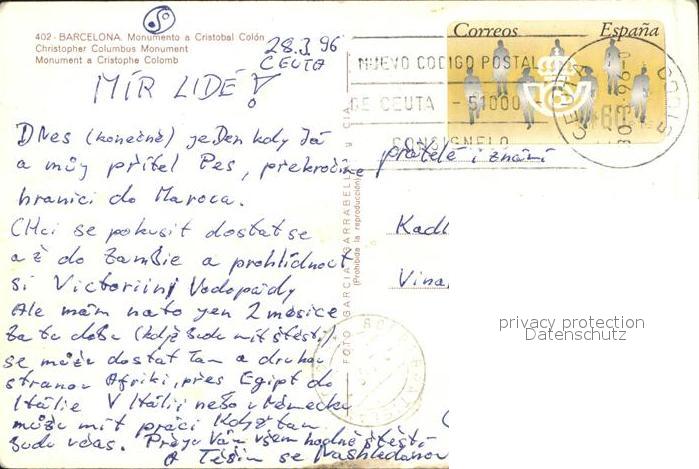 402 - BARCELONA. Monumento a Cristobal Colón
Christopher Columbus Monument
Monument a Cristophe Colomb
28.3.96
CEUTA
MÍR LIDÉ!
DNes (konečně) jeDen kdy Já
a můj přítel Pes, překročíme
hranici do Maroca.
CHci se pokusit dostat se
až do Zambie a prohlídnout
si Victoriiny Vodopády
Ale mám na to jen 2 měsíce
Za tu dobu (když budu mít štěstí)
se můžu dostat Tam a druhou
stranou Afriki, přes Egipt do
Itálie V Itálii nebo v Německu
můžu mít práci Když tam
budu včas. Přeju Vám všem hodně štěstí
A Těším se Nashledanou
FOTO GARCIA GARRABELLA Y CIA.
(Prohibida la reproducción)
Correos España
NUEVO CODIGO POSTAL
DE CEUTA - 51000
CONSIGNELO
CEUTA
přátelé i známí
Kadl
Vina
privacy protection
Datenschutz